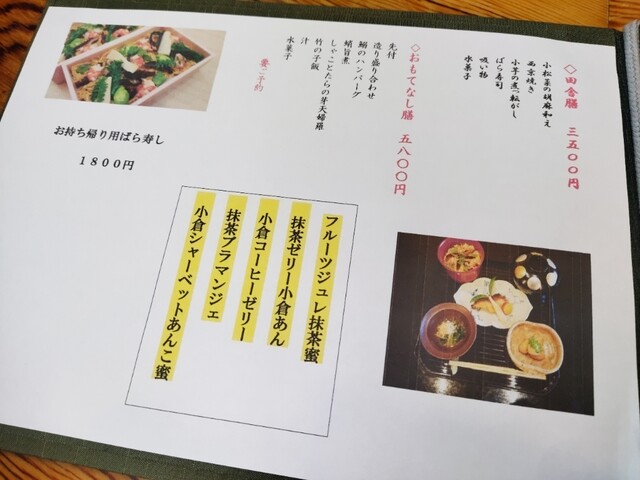 ◇田舎膳　三五〇〇円
小松菜の胡麻和え
西京焼き
小芋の煮っ転がし
ばら寿司
吸い物
水菓子
◇おもてなし膳　五八〇〇円
先付
造り盛り合わせ
鰯のハンバーグ
蛸旨煮
しゃことたらの芽天婦羅
竹の子飯
汁
水菓子
要ご予約
お持ち帰り用ばら寿し
１８００円
フルーツジュレ抹茶蜜
抹茶ゼリー小倉あん
小倉コーヒーゼリー
抹茶ブラマンジェ
小倉シャーベットあんこ蜜